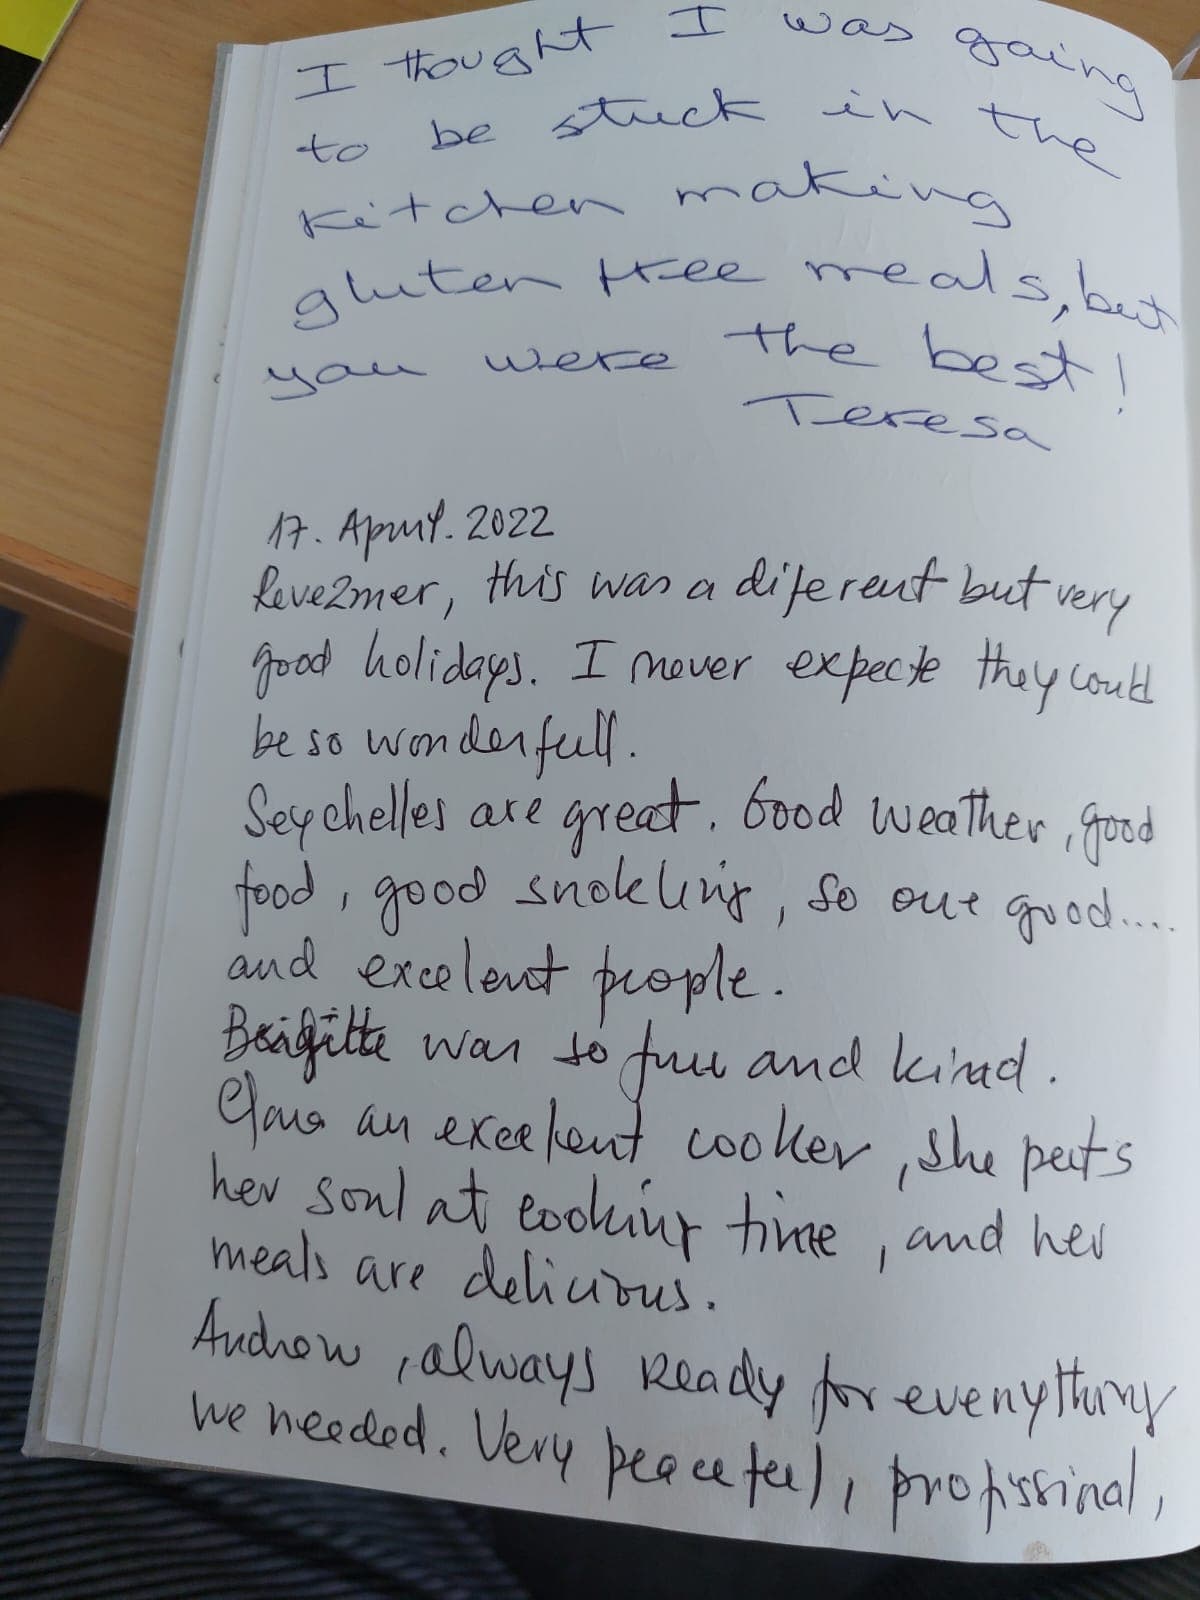 I thought I was going
to be stuck in the
kitchen making
gluten free meals, but
you were the best!
Teresa
17. April. 2022
Reve2mer, this was a diferent but very
good holidays. I never expecte they could
be so wonderfull.
Seychelles are great. Good weather, good
food, good snokling, so out good....
and excelent people.
Brigitte was so and kind.
an excelent cooker, she puts
her soul at cooking time, and her
meals are delicious.
Andrew, always ready for everything
we needed. Very peaceful, profissinal,